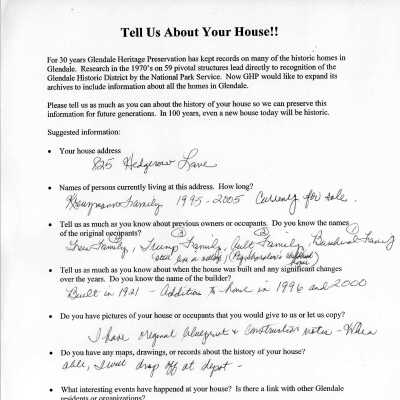 Tell Us About Your House!!
For 30 years Glendale Heritage Preservation has kept records on many of the historic homes in
Glendale. Research in the 1970's on 59 pivotal structures lead directly to recognition of the
Glendale Historic District by the National Park Service. Now GHP would like to expand its
archives to include information about all the homes in Glendale.
Please tell us as much as you can about the history of your house so we can preserve this
information for future generations. In 100 years, even a new house today will be historic.
Suggested information:
• Your house address
825 Hedgerow Lane
• Names of persons currently living at this address. How long?
Family 1995-2005 Currently for sale.
• Tell us as much as you know about previous owners or occupants. Do you know the names
of the original occupants?
Family, Family, Ault Family, Family
• Tell us as much as you know about when the house was built and any significant changes
over the years. Do you know the name of the builder?
Built in 1921 - Addition to home in 1996 and 2000
• Do you have pictures of your house or occupants that you would give to us or let us copy?
I have original blueprint & construction notes -
• Do you have any maps, drawings, or records about the history of your house?
I will drop off at depot -
• What interesting events have happened at your house? Is there a link with other Glendale
residents or organizations?